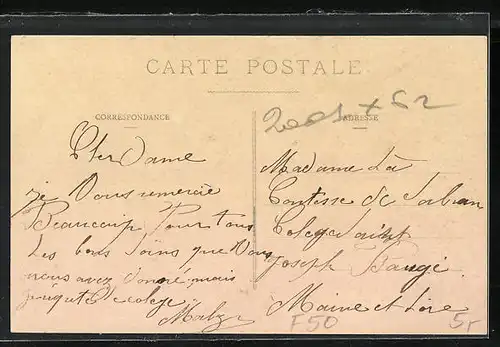 CARTE POSTALE
CORRESPONDANCE
ADRESSE
2001 x 52
Cher Dame
je Vous remercie
Beaucoup Pour tous
Les bons Soins que Vous
nous avez Donné mais
Madame La
Comtesse de
Joseph Baugé
Maine et Loire
F50
5r